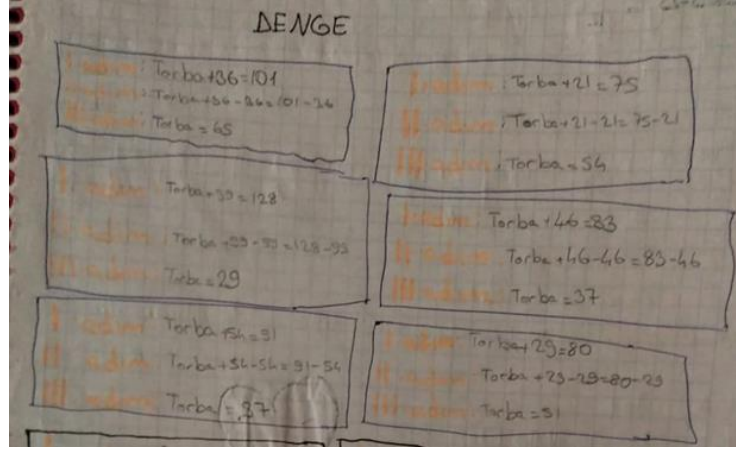 DENGE
I. adım: Torba+36=101
II. adım: Torba+36-36=101-36
III. adım: Torba=65
I. adım: Torba+21=75
II. adım: Torba+21-21=75-21
III. adım: Torba=54
I. adım: Torba+99=128
II. adım: Torba+99-99=128-99
III. adım: Torba=29
I. adım: Torba+46=83
II. adım: Torba+46-46=83-46
III. adım: Torba=37
I. adım: Torba+54=91
II. adım: Torba+54-54=91-54
III. adım: Torba=37
I. adım: Torba+29=80
II. adım: Torba+29-29=80-29
III. adım: Torba=51